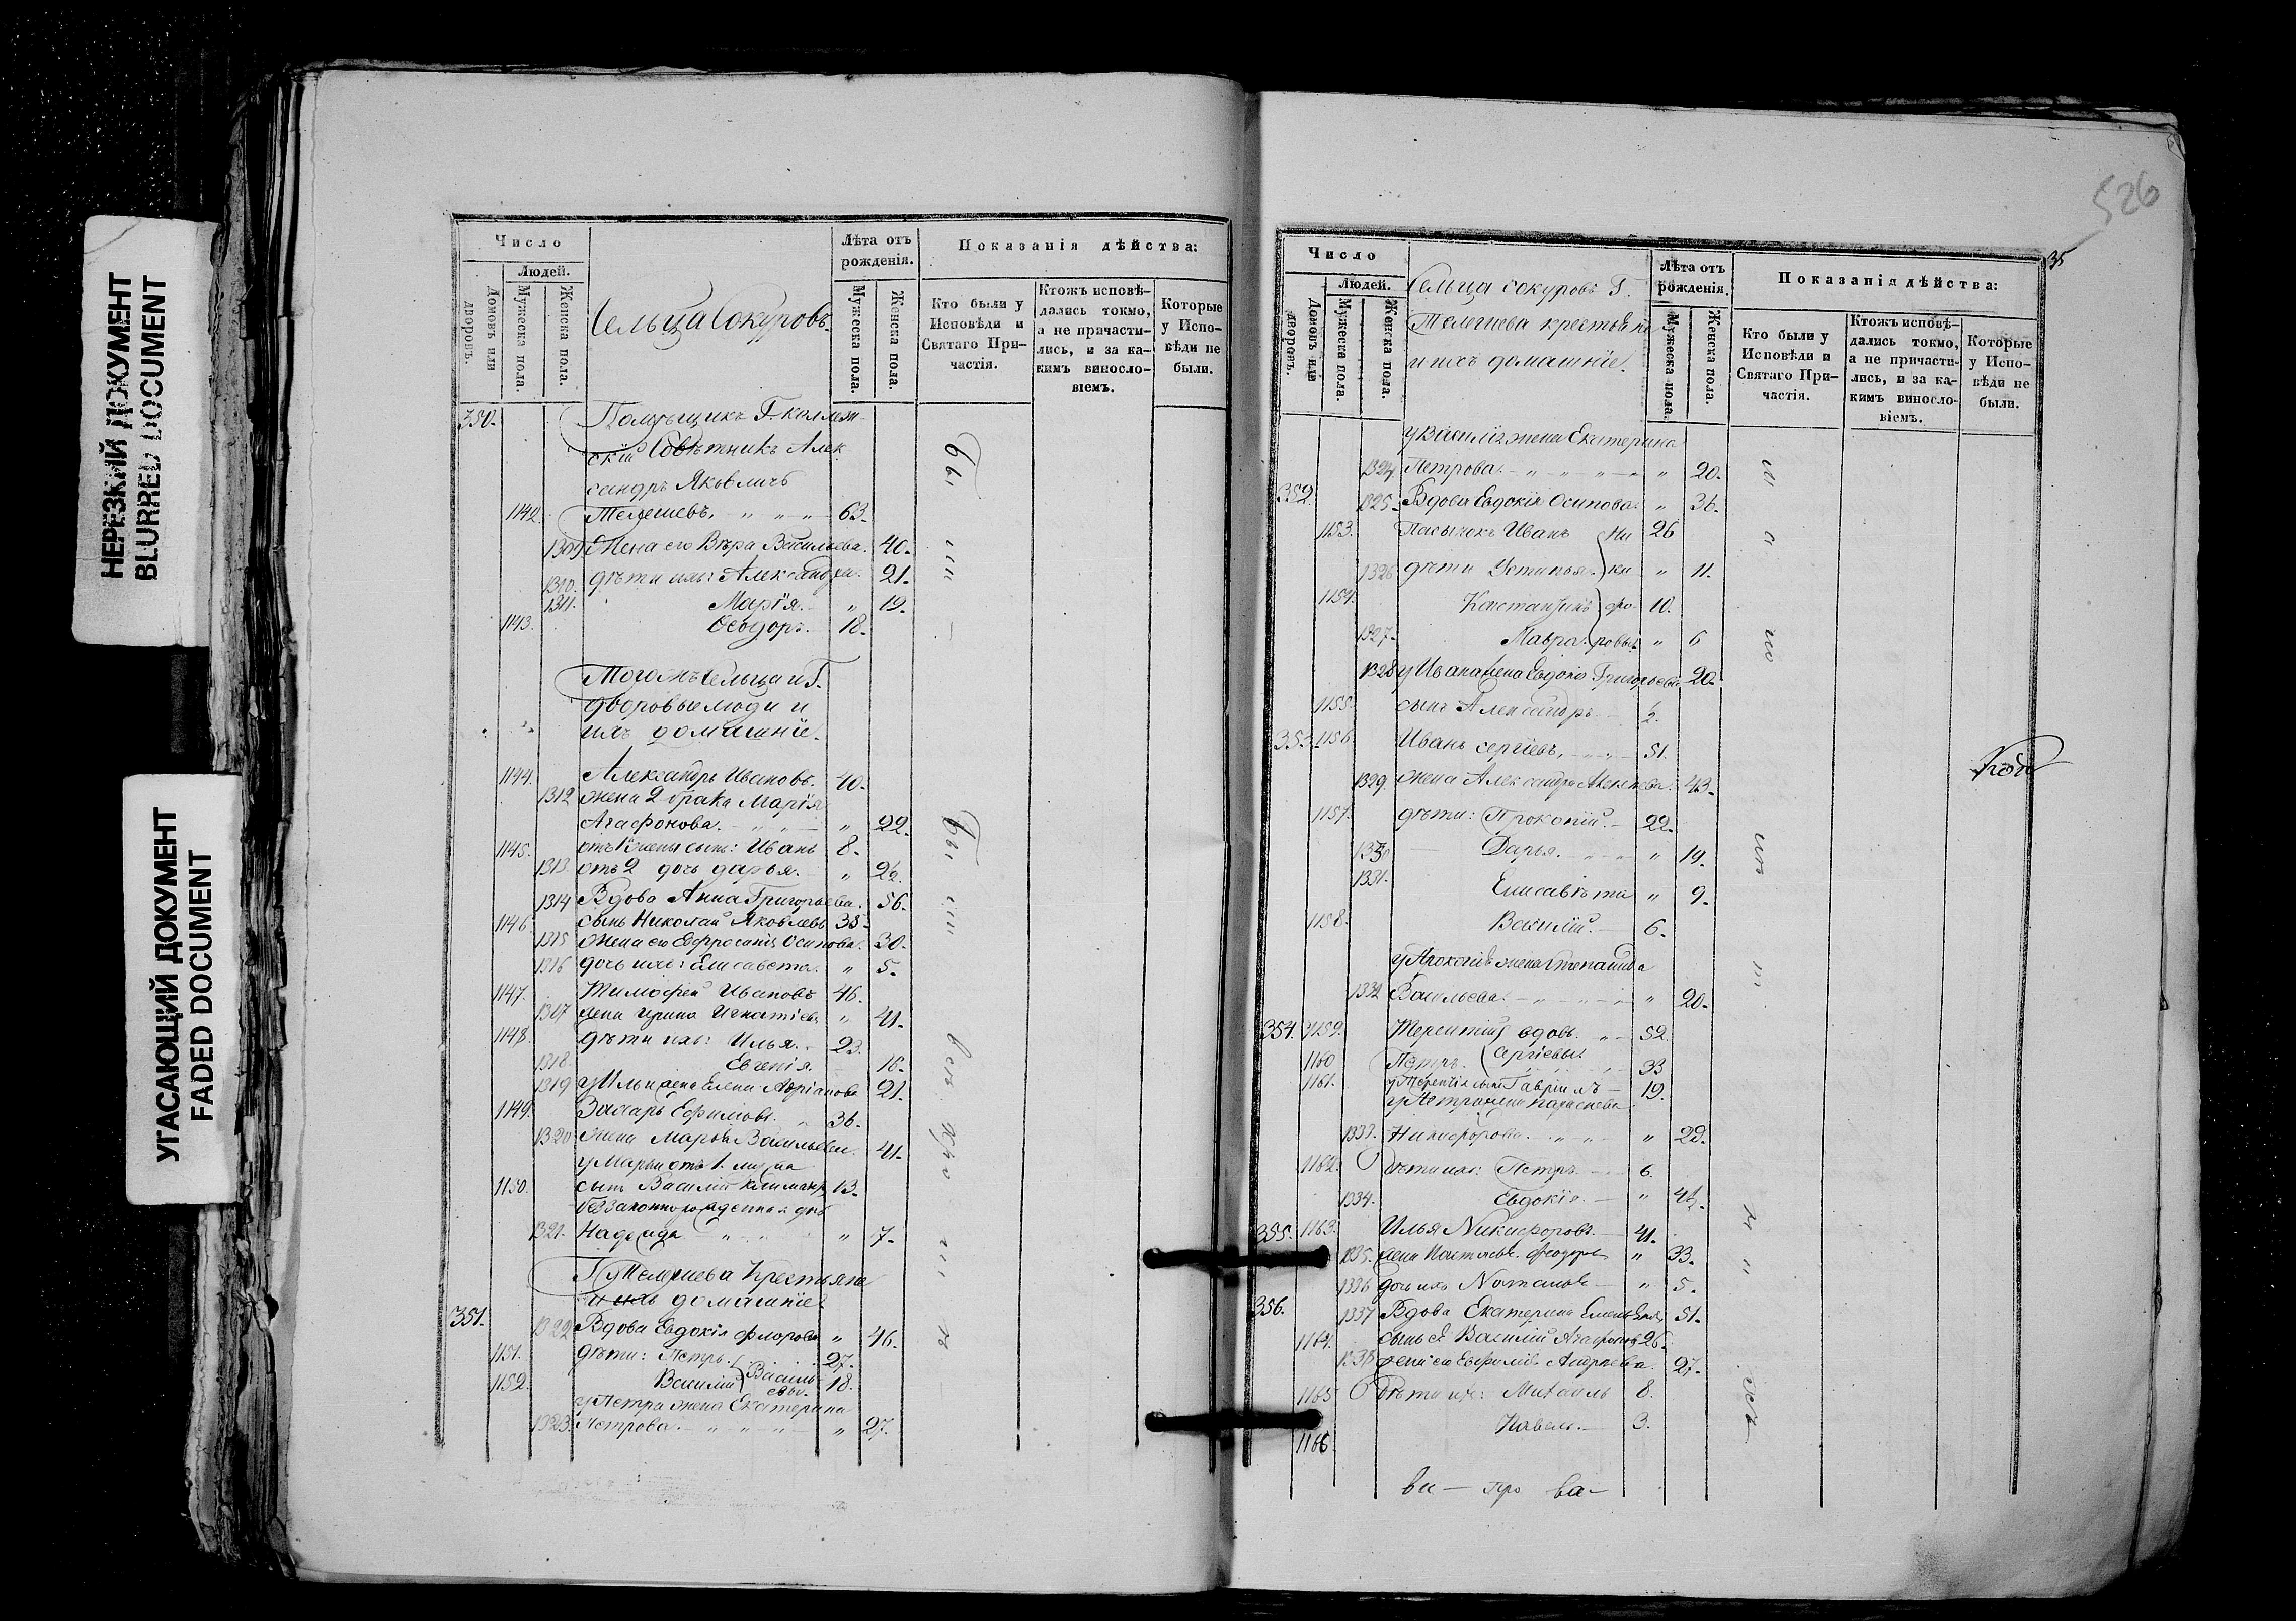 НЕРЕЗКИЙ ДОКУМЕНТ
BLURRED DOCUMENT
УГАСАЮЩИЙ ДОКУМЕНТ
FADED DOCUMENT
Число
Людей.
Домовъ или дворовъ.
Мужеска пола.
Женска пола.
Сельца Сокуровъ.
Лѣта отъ рожденія.
Мужеска пола.
Женска пола.
Показанія дѣйства:
Кто были у Исповѣди и Святаго Причастія.
Ктожъ исповѣдались токмо, а не причастились, и за какимъ винословіемъ.
Которые у Исповѣди не были.
350. Помѣщикъ Г. коллеж-
скій Совѣтникъ Алек-
сандръ Яковличь
1142. Телешевъ. 63.
1309 Жена его Вѣра Васильева. 40.
1310. дѣти ихъ: Александра. 21.
1311. Марія. " 19.
1143. Ѳеодоръ. 18.
Тогожъ Сельца и Г.
дворовые люди и
ихъ домашніе.
1144. Александръ Ивановъ. 40.
1312 жена 2 брака Марія
Агафонова. " 22.
1145. отъ 1 жены сынъ: Иванъ 8.
1313 отъ 2 дочь дарья. "
1314 Вдова Анна Григорьева. 56.
1146. сынъ Николай Яковлевъ 35.
1315 жена его Ефросинія Осипова. 30.
1316 дочь ихъ: Елисавета. " 5.
1147. Тимофей Ивановъ 46.
1317 жена Ирина Игнатіева " 41.
1148. дѣти ихъ: Илья. 23.
1318. Евгенія. 16.
1319 у Ильи жена Елена Адріанова 21.
1149. Захаръ Ефимовъ. 36.
1320 жена Марья Васильева. 41.
у Марьи отъ 1. мужа
1150. сынъ Василій 13.
незаконнорожденная дочь
1321. Надежда " " " 7.
Г. Телешева Крестьяне
и ихъ домашніе
351. 1322 Вдова Евдокія Флорова " 46.
1151. дѣти: Петръ. 27.
1152. Василій Васильевы. 18.
у Петра жена Екатерина
1323. Петрова. " 27.
526
35
Число
Людей.
Домовъ или дворовъ.
Мужеска пола.
Женска пола.
Сельца сокуровъ Г.
Телешева крестьяне
и ихъ домашніе.
Лѣта отъ рожденія.
Мужеска пола.
Женска пола.
Показанія дѣйства:
Кто были у Исповѣди и Святаго Причастія.
Ктожъ исповѣдались токмо, а не причастились, и за какимъ винословіемъ.
Которые у Исповѣди не были.
у Василія жена Екатерина
1324 Петрова. " 20.
352. 1325. Вдова Евдокія Осипова. " 36.
1153. Пасынокъ Иванъ Ни 26
1326 дѣти Устинья ки " 11.
1154. Констанинъ фо- 10.
1327. Мавра. ровы. " 6
1328 у Ивана жена Евдокія Григорьева 20.
1155. сынъ Александръ.
353. 1156. Иванъ сергіевъ, 51.
1329. жена Александра 43.
1157. дѣти: Прокопій. 22.
1330 Дарья. " 19.
1331. Елисавѣта " 9.
1158. Василій. 6.
у Прокопія жена Степанида
1332 Васильева. " 20.
354. 1159. Терентій вдовъ. 52.
1160 Петръ. Сергіевы. 33
1161. у Терентія сынъ Гавріилъ 19.
у Петра жена Параскева
1333. Никифорова. " 29.
1162. дѣти ихъ: Петръ. 6.
1334. Евдокія. "
355. 1163. Илья Никифоровъ. 41.
1335. жена Наталья Феодор " 33.
1336 дочь ихъ Наталья " 5.
356. 1337 Вдова Екатерина 51.
1164. сынъ ея Василій Агафоновъ 26.
1338 жена его Евфимія Андреева. 27.
1165 дѣти их: Михаилъ 8.
1166 Павелъ. 3.